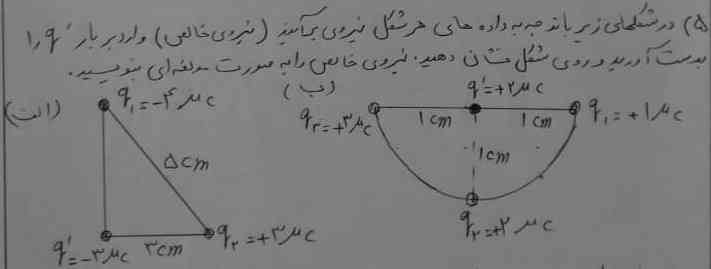 ۵) در شکلهای زیر با توجه به داده های هر شکل نیروی برآیند (نیروی خالص) وارد بر بار q' را
بدست آورید و روی شکل نشان دهید. نیروی خالص را به صورت مولفه ای بنویسید.
الف)
q₁=-۴μc
۵cm
q'=-۳μc
۳cm
q₂=+۳μc
ب)
q₃=+۳μc
q'=+۲μc
q₁=+۱μc
۱cm
۱cm
۱cm
q₂=+۲μc